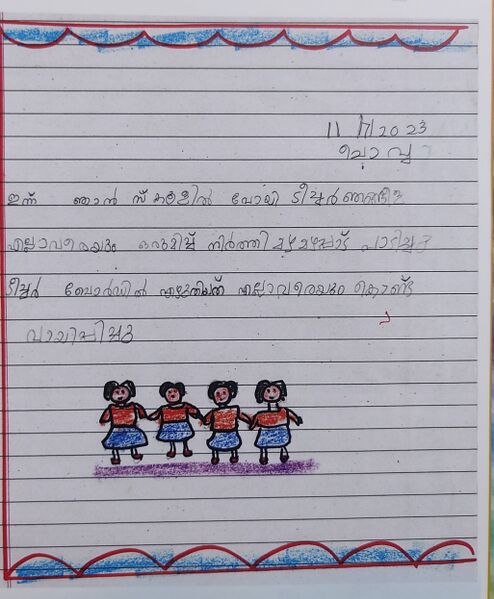 11/7/2023
ചൊവ്വ
ഇന്ന് ഞാൻ സ്കൂളിൽ പോയി ടീച്ചർ ഞങ്ങളെ
എല്ലാവരെയും ഒരുമിച്ച് നിർത്തി മഴ മഴപ്പാട്ട് പാടിച്ചു
ടീച്ചർ ബോർഡിൽ എഴുതിയത് എല്ലാവരെയും കൊണ്ട്
വായിപ്പിച്ചു